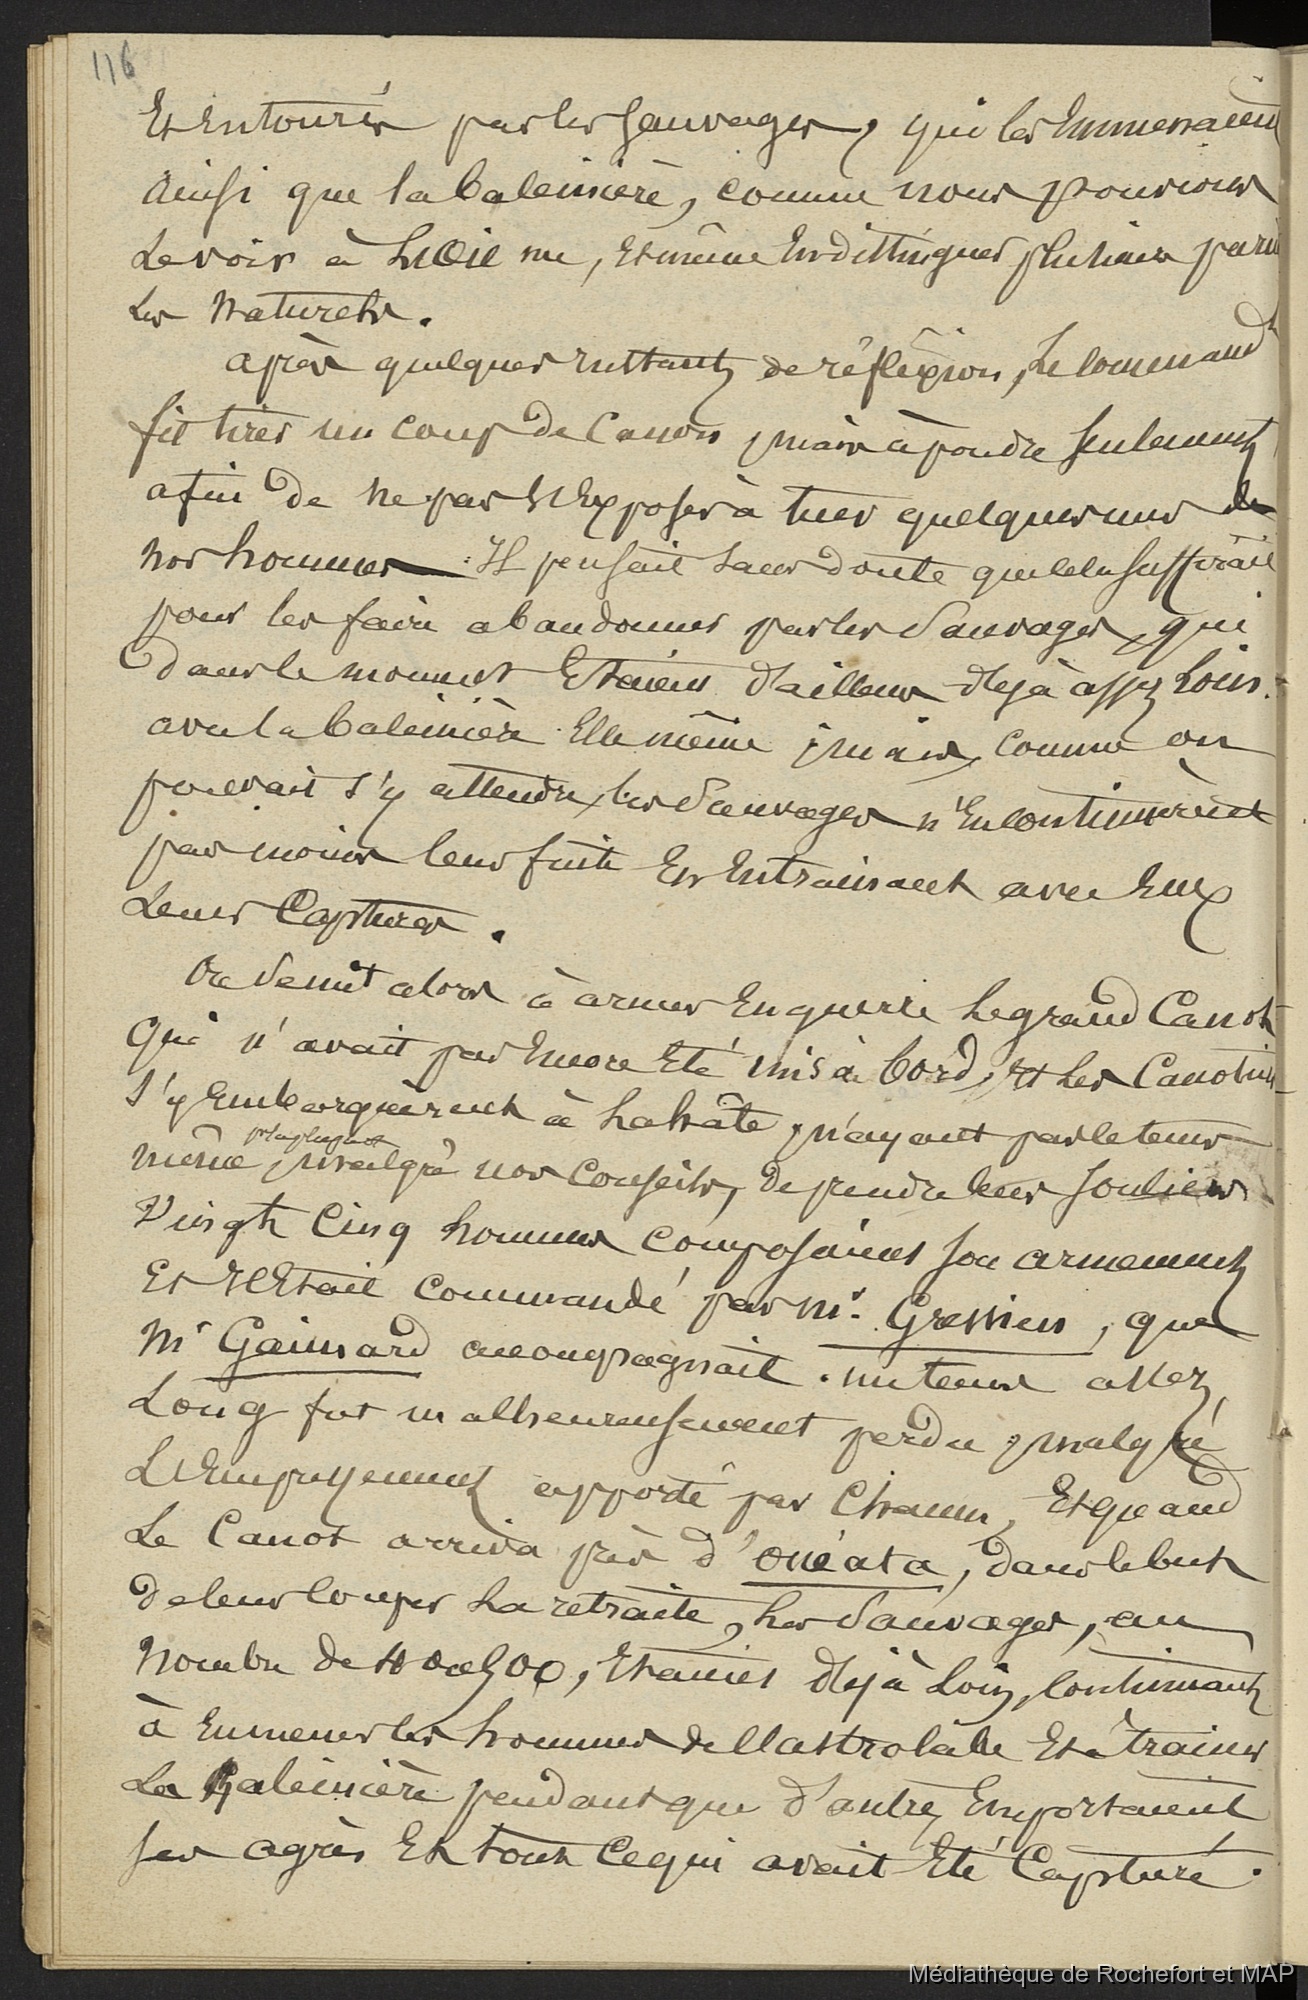 116
Et entourés par les sauvages, qui les emmenaient
ainsi que la baleinière, comme nous pouvions
le voir à l'Œil nu, et même en distinguer plusieurs parmi
les Naturels.
après quelques instants de réflexion, le command.t
fit tirer un coup de canon, mais à poudre seulement,
afin de ne pas s'exposer à tuer quelques uns de
nos hommes — Il pensait sans doute que cela suffirait
pour les faire abandonner par les sauvages, qui
dans le moment étaient d'ailleurs déjà assez loin.
avec la baleinière elle même ; mais, comme on
pouvait s'y attendre, les sauvages n'en continuèrent
pas moins leur fuite en entrainant avec eux
leurs captures.
On se mit alors à armer en guerre le grand canot
qui n'avait pas encore été mis à bord, et les canotiers
s'y embarquèrent à la hâte, n'ayant pas le tems
pr la plupart
même, malgré nos conseils, de prendre leurs souliers
Vingt cinq hommes composaient son armement
et il était commandé par Mr. Gressien, que
Mr Gaimard accompagnait. un tems assez
long fut malheureusement perdu, malgré
l'empressement apporté par chacun, et quand
le canot arriva près d'onéata, dans le but
de leur couper la retraite, les sauvages, au
nombre de 4 à 500, étaient déjà loin, continuant
à emmener les hommes de l'astrolabe et à trainer
la Baleinière pendant que d'autres emportaient
ses agrès et tout ce qui avait été capturé.
Médiathèque de Rochefort et MAP